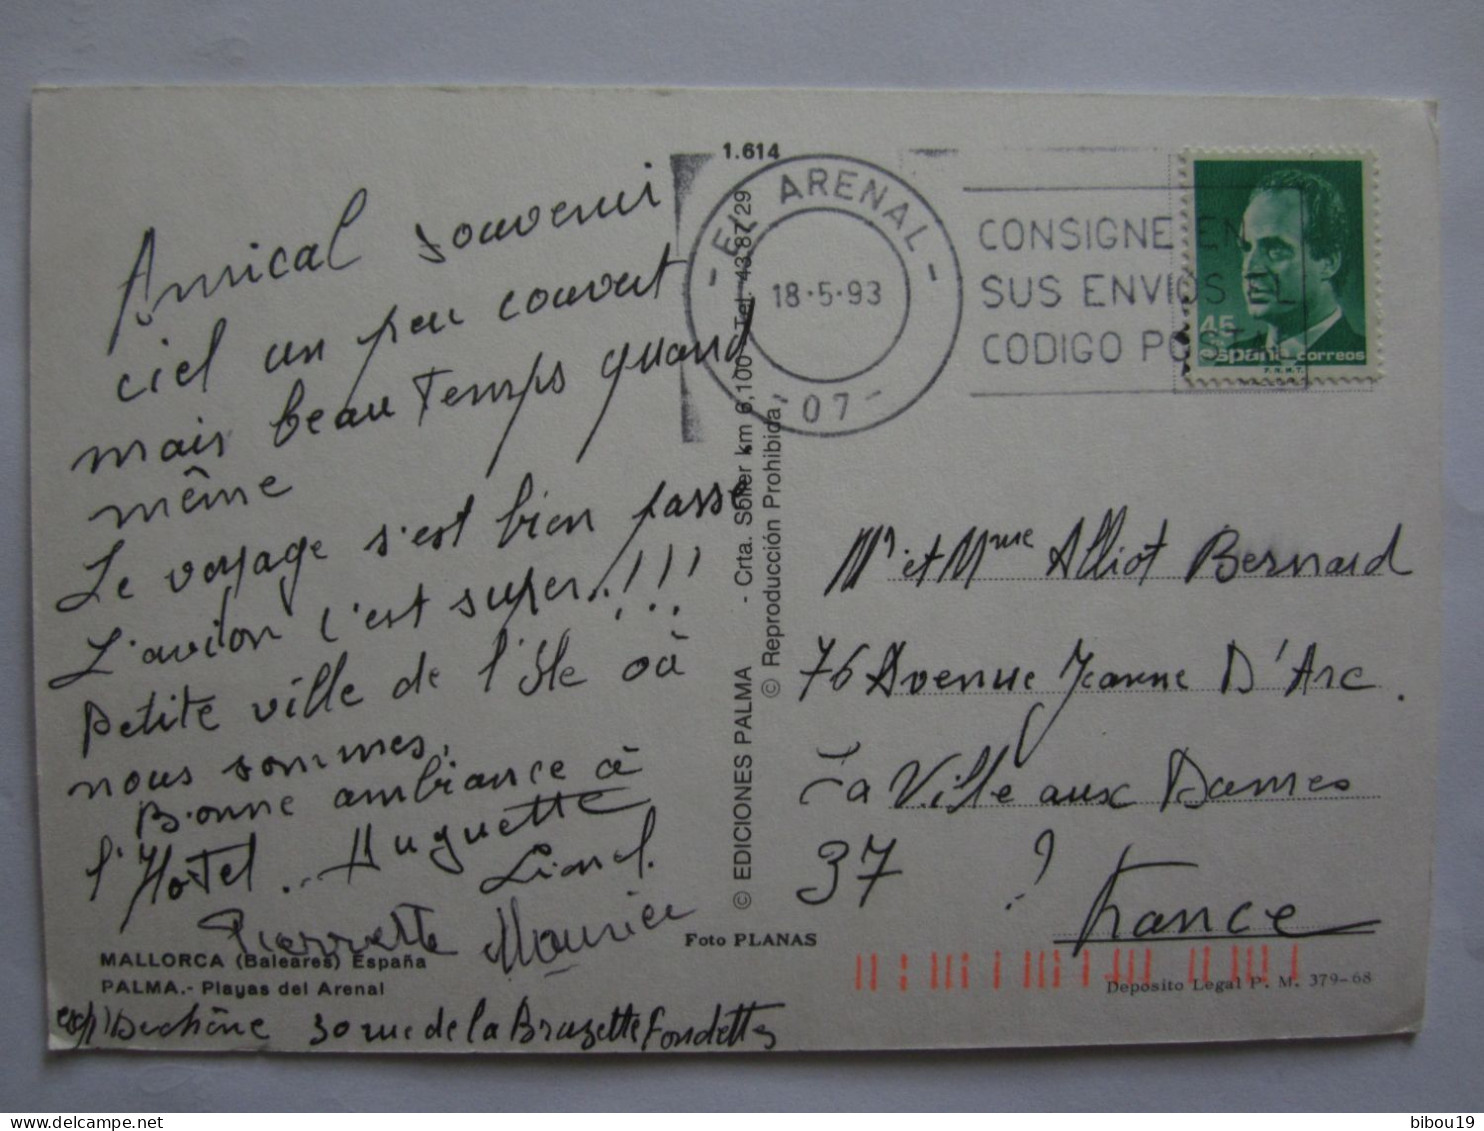 Amical souvenir
ciel un peu couvert
mais beau Temps quand
même
Le voyage s'est bien passé
L'avion c'est super..!!!
Petite ville de l'île où
nous sommes.
Bonne ambiance à
l'Hotel.. Huguette
Lionel.
Pierrette Maurice
MALLORCA (Baleares) España
PALMA.- Playas del Arenal
exp) Duchêne 30 rue de la Bruzette Fondettes
1.614
© EDICIONES PALMA - Crta. Sóller km 6,100 Tel. 43 87 29
© Reproducción Prohibida
Foto PLANAS
- EL ARENAL -
18·5·93
- 07 -
CONSIGNE EN
SUS ENVIOS EL
CODIGO POSTAL
45
españa correos
F.N.M.T.
Mr et Mme Alliot Bernard
76 Avenue Jeanne D'Arc.
La Ville aux Dames
37 ?
France
Deposito Legal P. M. 379-68
bibou19